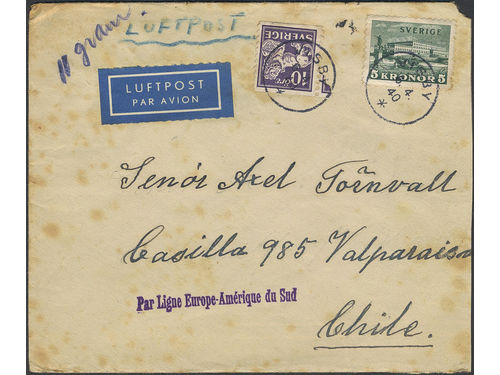 11 gram.
LUFTPOST
LUFTPOST
PAR AVION
SVERIGE
10 ÖRE
SVERIGE
5 KRONOR 5
4.
40
Senór Axel Törnvall
Casilla 985 Valparaiso
Par Ligne Europe-Amérique du Sud
Chile.